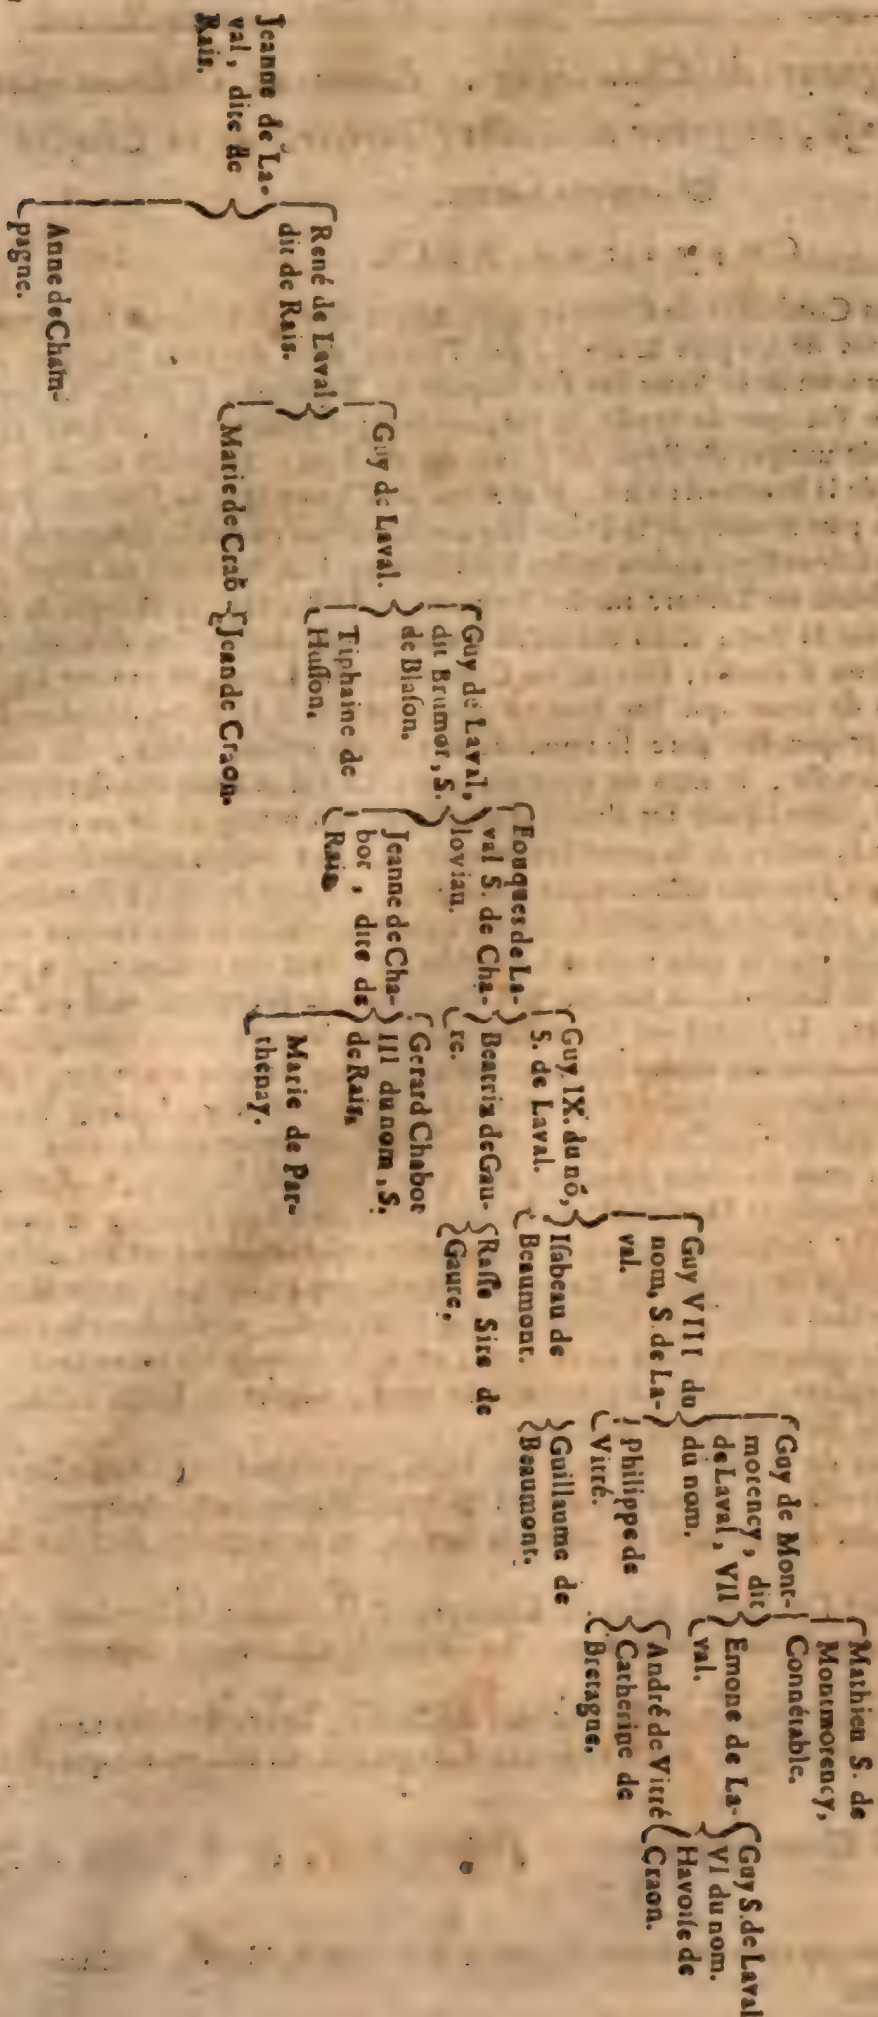 Jeanne de La-
val, dite de
Rais.
René de Laval
dit de Rais.
Anne de Cham-
pagne.
Guy de Laval.
Marie de Craõ
Guy de Laval,
dit Brumor, S.
de Blaſon.
Tiphaine de
Huſſon.
Jean de Craon.
Fouques de La-
val S. de Cha-
loviau.
Jeanne de Cha-
bot, dite de
Rais
Guy IX. du nó,
S. de Laval.
Beatrix de Gau-
re.
Gerard Chabot
III du nom, S.
de Rais,
Marie de Par-
thenay.
Guy VIII du
nom, S. de La-
val.
Iſabeau de
Beaumont.
Raſſe Sire de
Gaure,
Guy de Mont-
morency, dit
de Laval, VII
du nom.
Philippe de
Vitré.
Guillaume de
Beaumont.
Mathieu S. de
Montmorency,
Connétable.
Emone de La-
val.
André de Vitré
Catherine de
Bretagne.
Guy S. de Laval
VI du nom.
Havoiſe de
Craon.